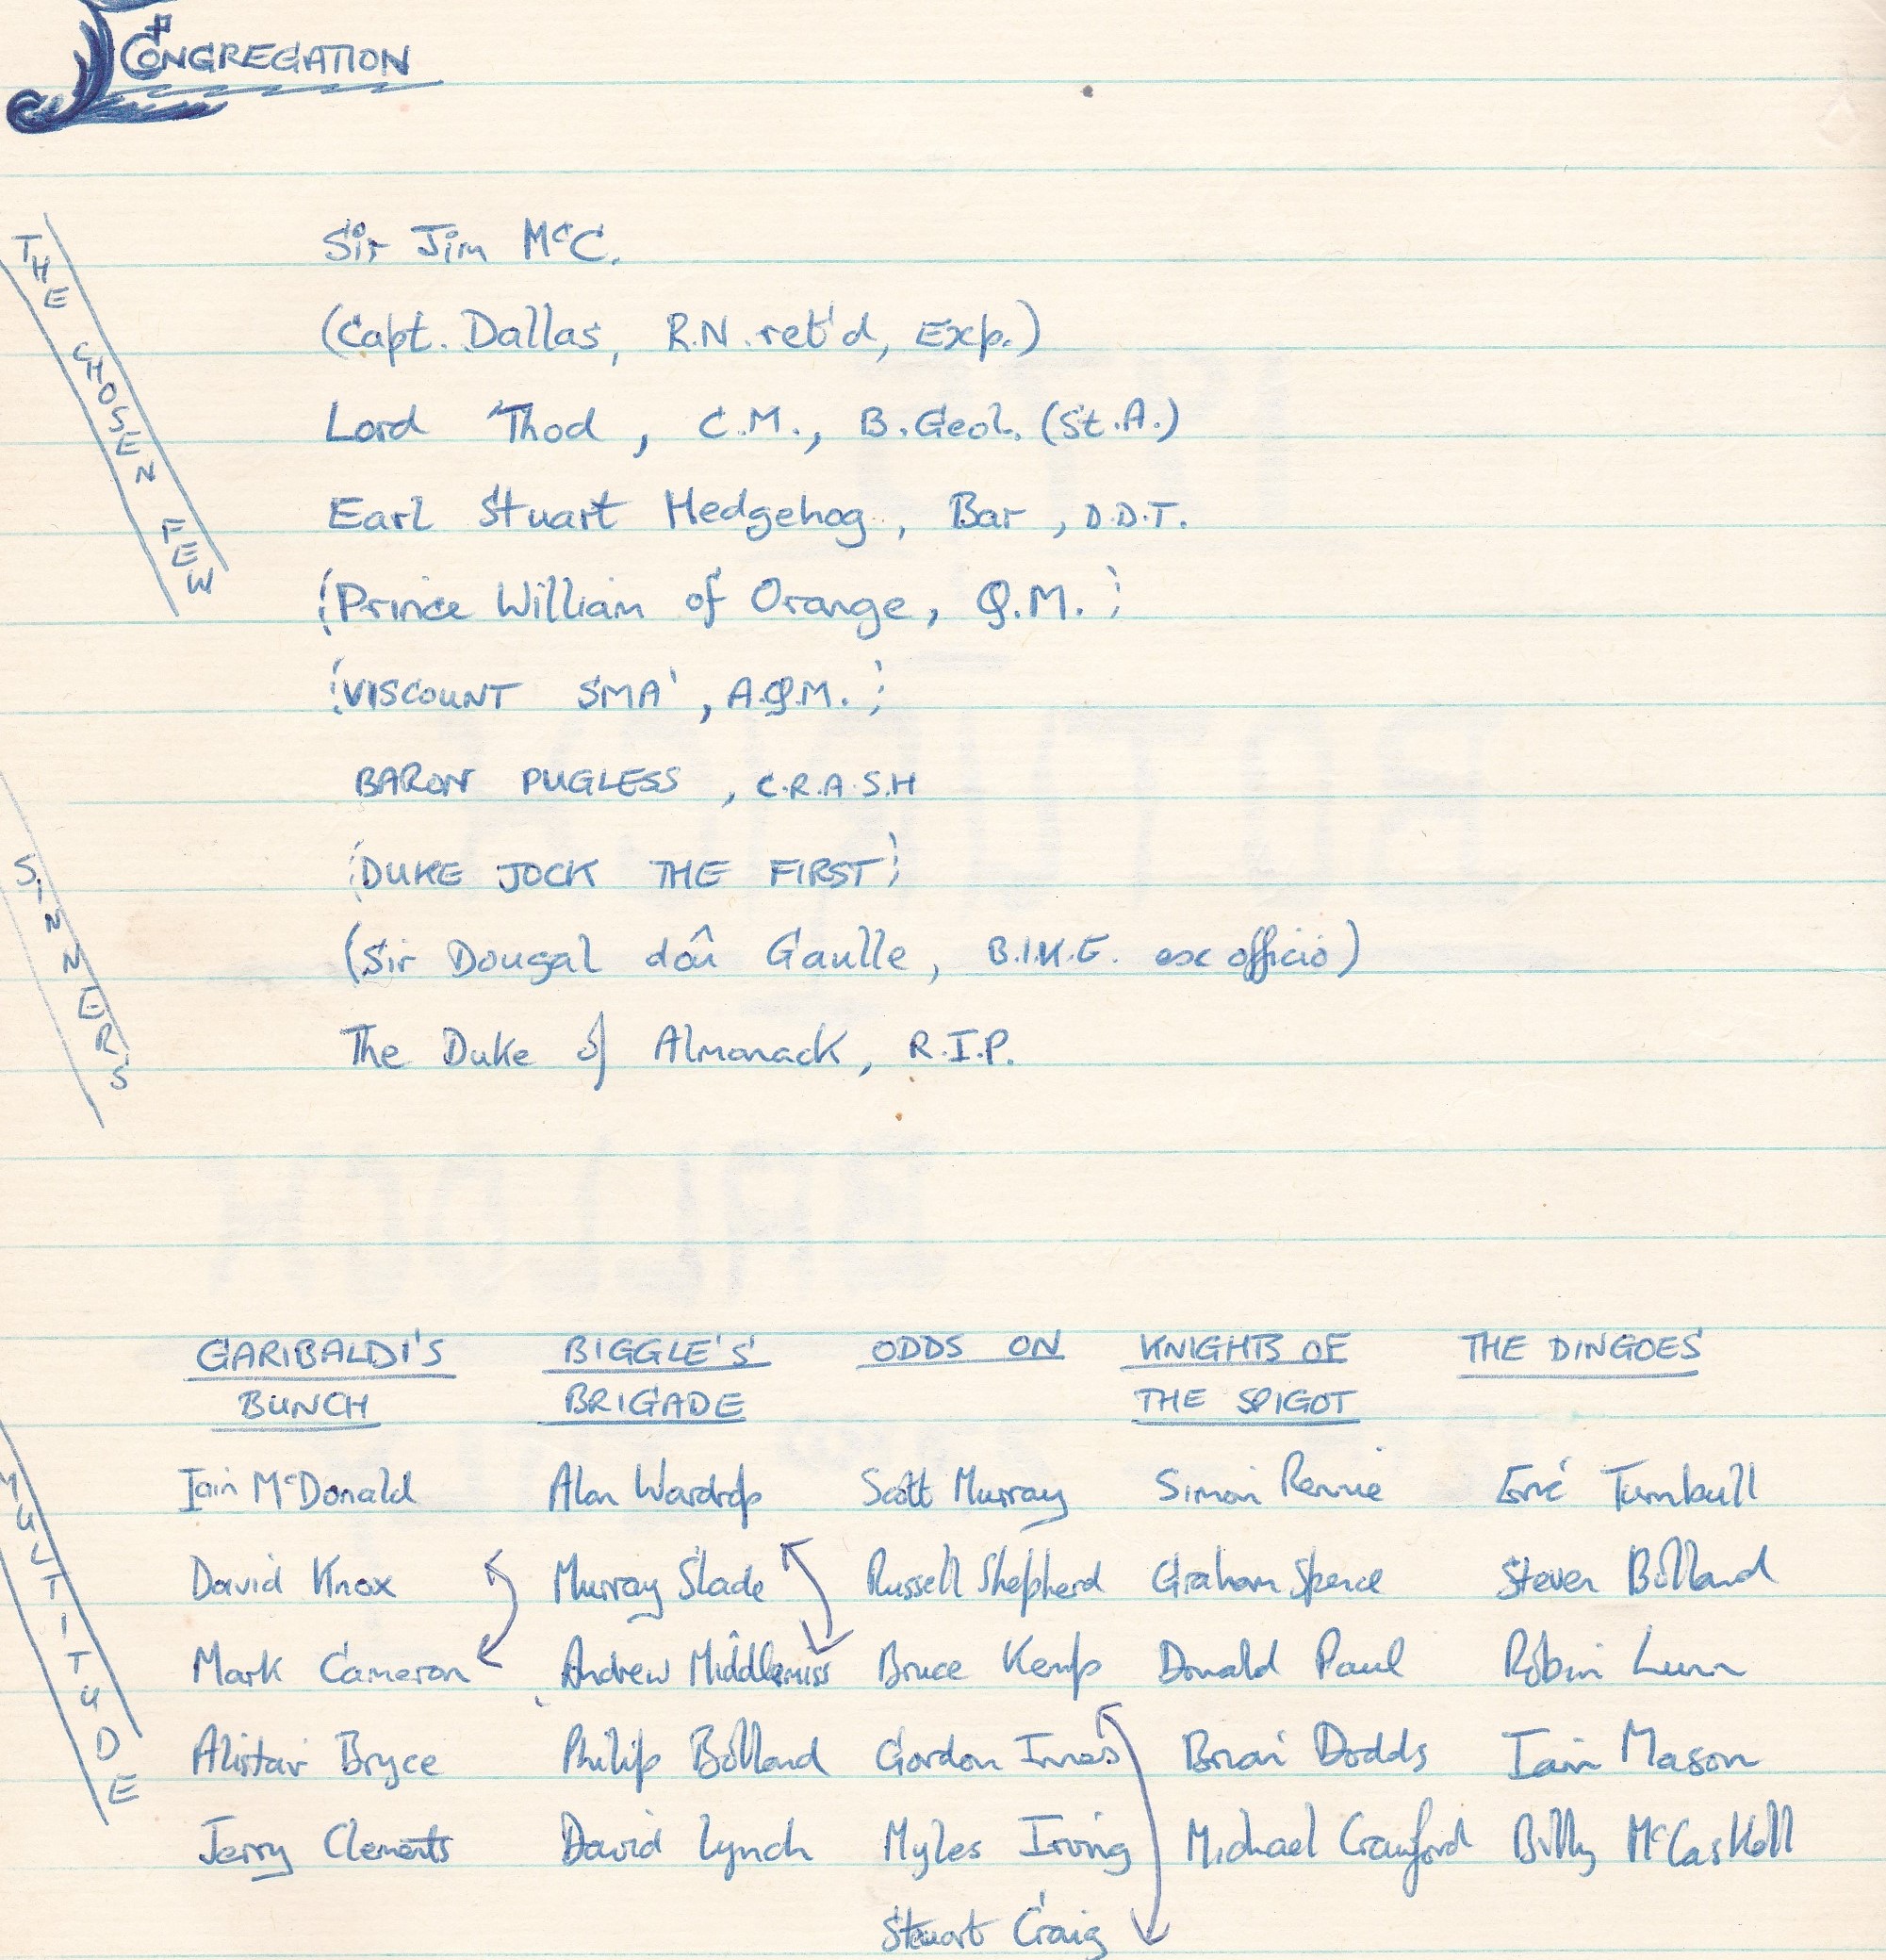 CONGREGATION
THE CHOSEN FEW
Sir Jim McC.
(Capt. Dallas, R.N. ret'd, Exp.)
Lord Thod, C.M., B.Geol. (St.A.)
Earl Stuart Hedgehog, Bar, D.D.T.
(Prince William of Orange, Q.M.)
(VISCOUNT SMA', A.Q.M.)
SINNERS
BARON PUGLESS, C.R.A.S.H
(DUKE JOCK THE FIRST)
(Sir Dougal doû Gaulle, B.I.K.E. ex officio)
The Duke of Almanack, R.I.P.
MULTITUDE
GARIBALDI'S BUNCH
Iain McDonald
David Knox
Mark Cameron
Alistair Bryce
Jerry Clements
BIGGLE'S BRIGADE
Alan Wardrop
Murray Slade
Andrew Middlemiss
Philip Bolland
David Lynch
ODDS ON
Scott Murray
Russell Shepherd
Bruce Kemp
Gordon Innes
Myles Irving
Stuart Craig
KNIGHTS OF THE SPIGOT
Simon Rennie
Graham Spence
Donald Paul
Brian Dodds
Michael Crawford
THE DINGOES
Eric Turnbull
Steven Bolland
Robin Lunn
Iain Mason
Billy McCaskell